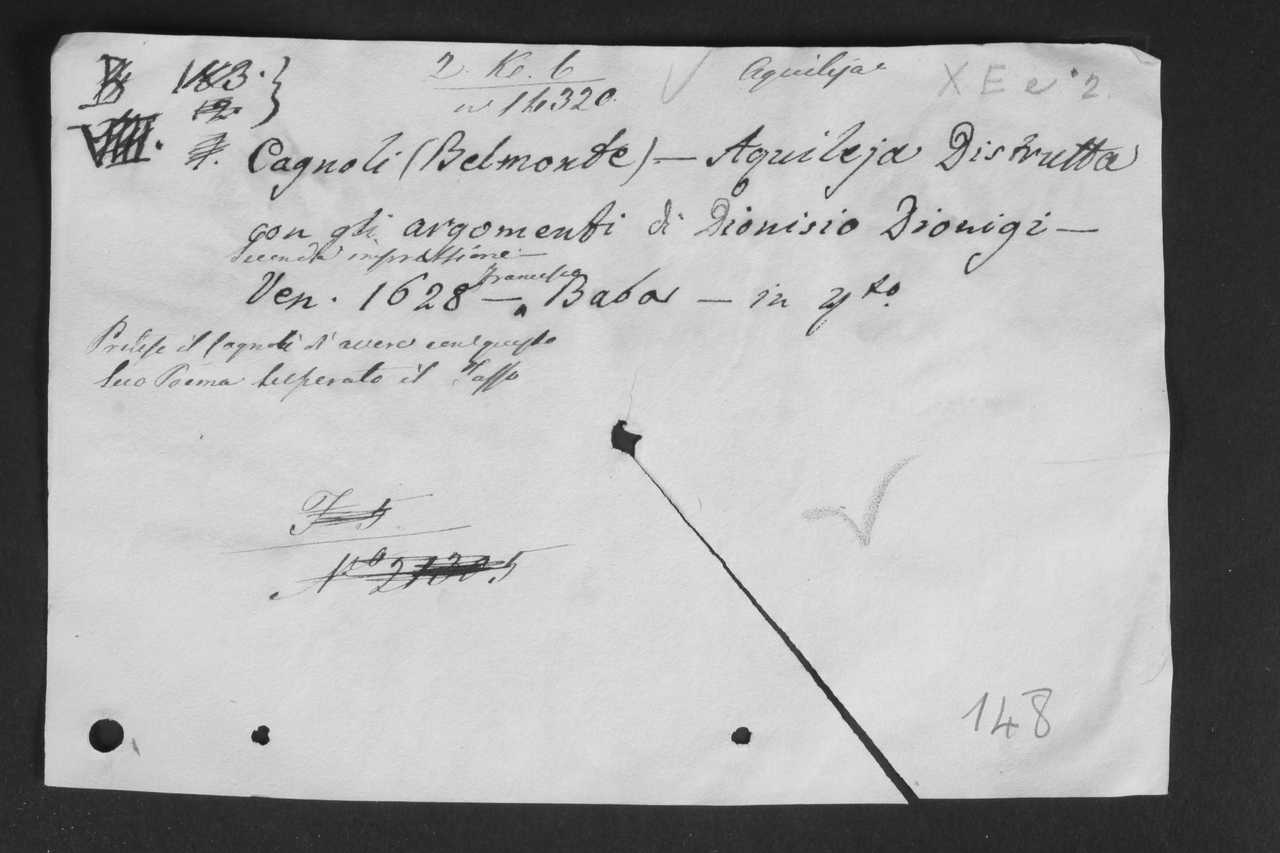 183.
2. K. 6
Aquileja
X E e 2.
12
n 14320.
7.
Cagnoli (Belmonte) — Aquileja Distrutta
con gli argomenti di Dionisio Dionigi —
Seconda impressione —
Ven. 1628 — Francesco Baba — in 4to.
Pretese il Cagnoli di avere con questo
suo Poema superato il Tasso
F 5
No 21305
148